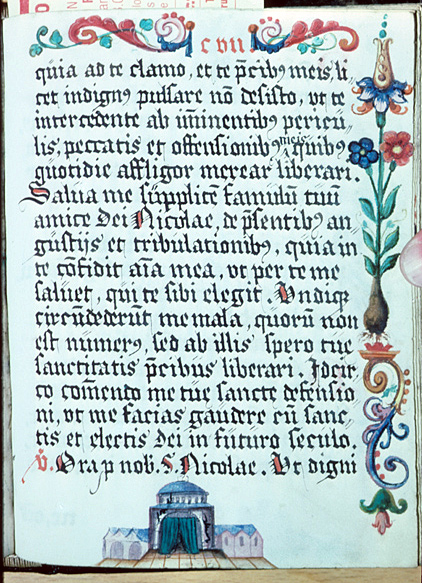 c vii
quia ad te clamo, et te p̄cibꝰ meis, li
cet indignꝰ pulsare nō desisto, vt te
intercedente ab im̄inentibꝰ pericu
lis, peccatis et offensionibꝰ meis quibꝰ
quotidie affligor merear liberari.
Salua me supplicē famulū tuū
amice Dei Nicolae, de p̄sentibꝰ an
gustijs et tribulationibꝰ, quia in
te cōfidit aīa mea, vt per te me
saluet, qui te sibi elegit. Vndiqꝫ
circūdederūt me mala, quorū non
est numerꝰ, sed ab illis spero tue
sanctitatis p̄cibus liberari. Idcir
co com̄endo me tue sancte defensio
ni, vt me facias gaudere cū sanc
tis et electis Dei in futuro seculo.
v̄. Ora p nob. S. Nicolae. Vt digni